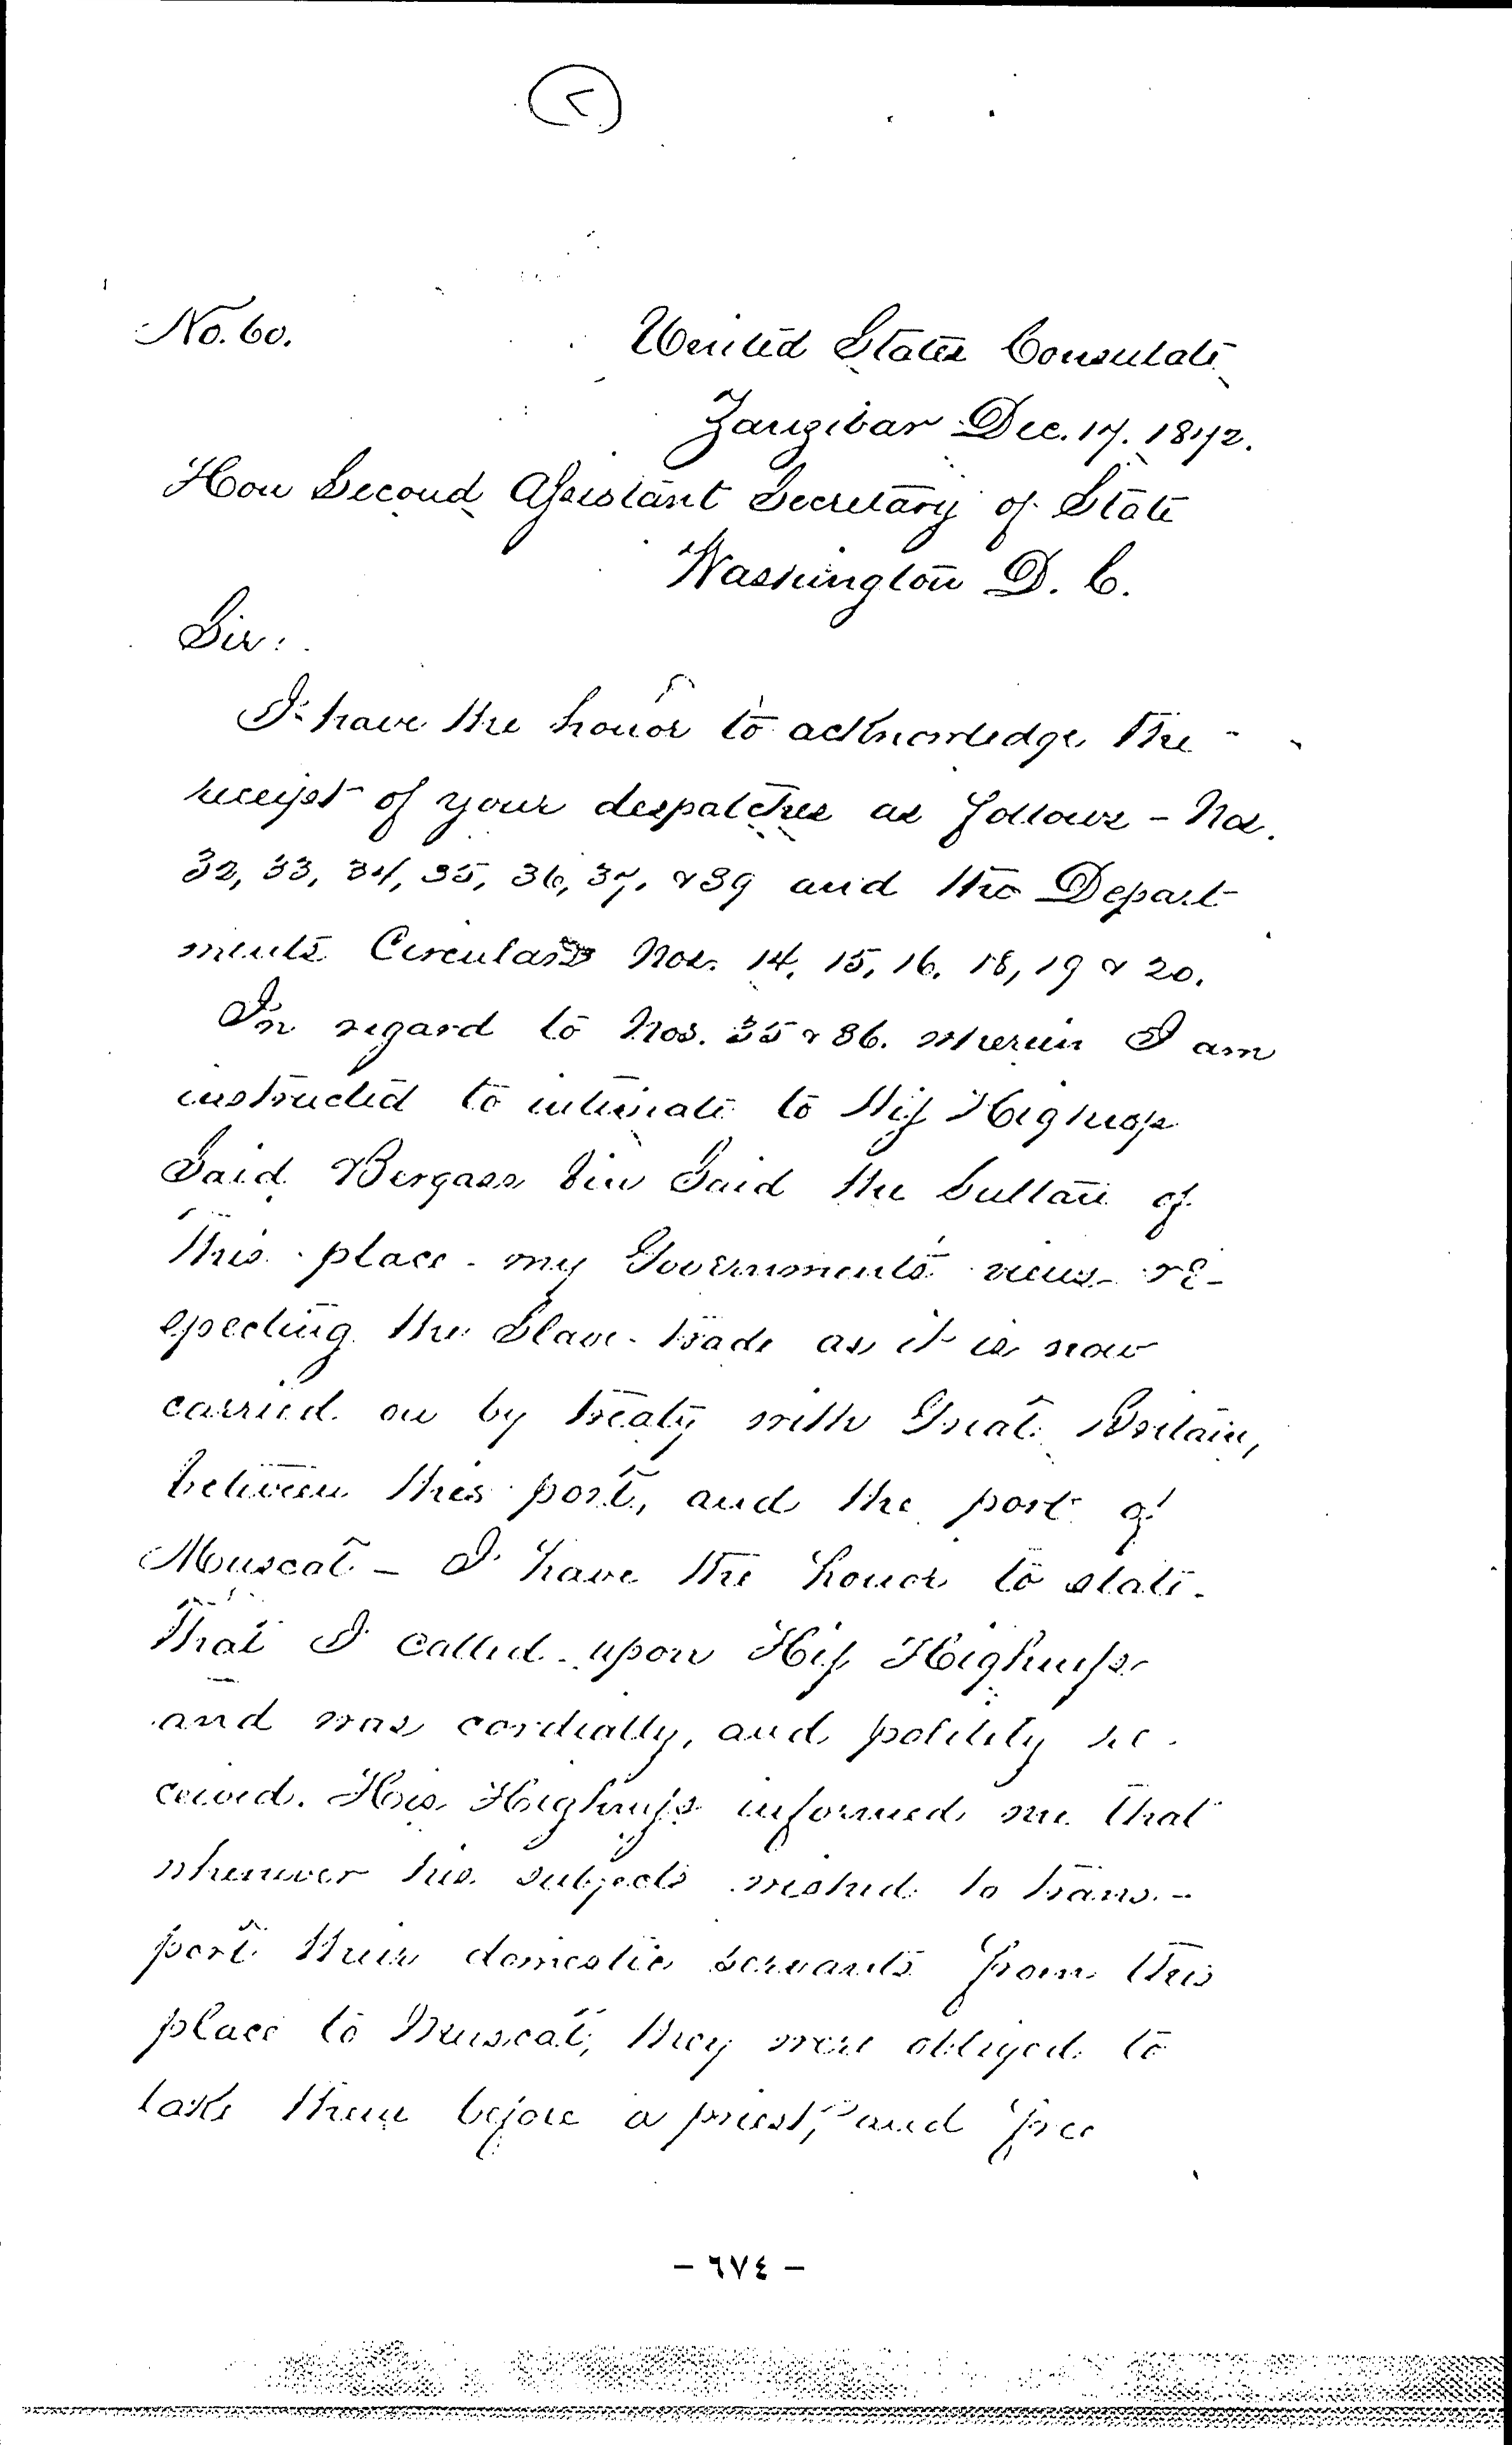 No. 60.
United States Consulate
Zanzibar Dec. 17. 1872.
Hon Second Assistant Secretary of State
Washington D. C.
Sir:
I have the honor to acknowledge the
receipt of your despatches as follows - Nos.
32, 33, 34, 35, 36, 37, & 39 and the Depart
ments Circulars Nos. 14, 15, 16, 18, 19 & 20.
In regard to Nos. 35 & 36. wherein I am
instructed to intimate to His Highness
Said Bergass bin Said the Sultan of
this place - my Governments views re-
specting the Slave-trade as it is now
carried on by treaty with Great Britain,
between this port, and the port of
Muscat - I have the honor to state
that I called upon His Highness
and was cordially, and politely re-
ceived. His Highness informed me that
whenever his subjects wished to trans-
port their domestic servants from this
place to Muscat, they were obliged to
take them before a priest, and free
- ٦٧٤ -